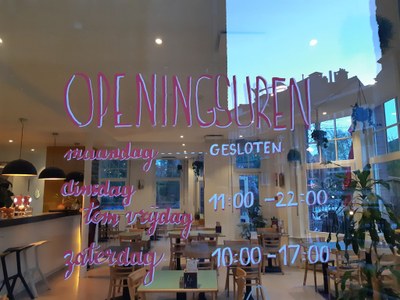 OPENINGSUREN
maandag GESLOTEN
dinsdag
tem vrijdag 11:00 - 22:00
zaterdag 10:00 - 17:00